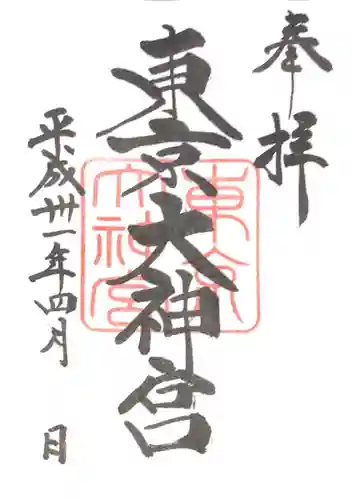 奉拝
東京大神宮
東京大神宮
平成卅一年四月 日